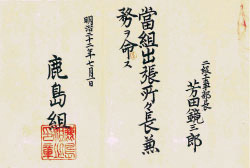 二級工事部長
芳田鏡三郎
當組出張所々長兼
務ヲ命ス
明治三十二年七月一日
鹿島組